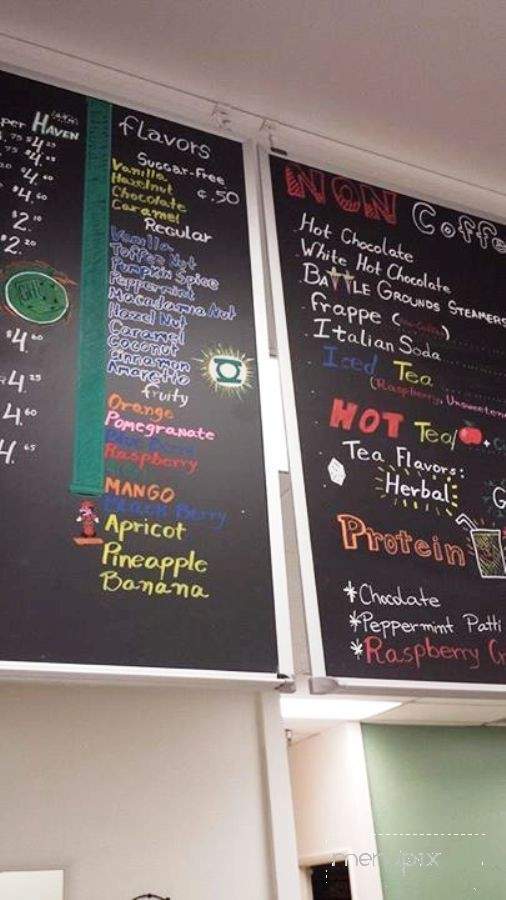 per HAVEN
.75 $4.25
$4.
$4.60
$4.60
$2.10
$2.20
$4.60
$4.25
4.60
4.65
flavors
Suggar-Free
Vanilla
Hazelnut
¢.50
Chocolate
Caramel
Regular
Vanilla
Toffee Nut
Pumpkin Spice
Peppermint
Macadamia Nut
Hazel Nut
Caramel
Coconut
Cinnamon
Amaretto
fruity
Orange
Pomegranate
Blue Berry
Raspberry
MANGO
BLACK Berry
Apricot
Pineapple
Banana
NON Coffe
Hot Chocolate
White Hot Chocolate
BATTLE GROUNDS STEAMERS
frappe (
Italian Soda
Iced Tea
(Raspberry, Unsweetene
HOT Tea/
Tea Flavors:
Herbal
G
Protein
*Chocolate
*Peppermint Patti
*Raspberry Cr
menupix